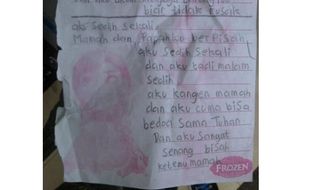 biar tidak rusak
aku sedih sekali
Mamah dan Papahku berpisah,
aku sedih sekali
dan aku tadi malam
sedih
aku kangen mamah
dan aku cuma bisa
bedoa sama Tuhan
Dan aku sangat
senang bisah
ketemu mamah
FROZEN